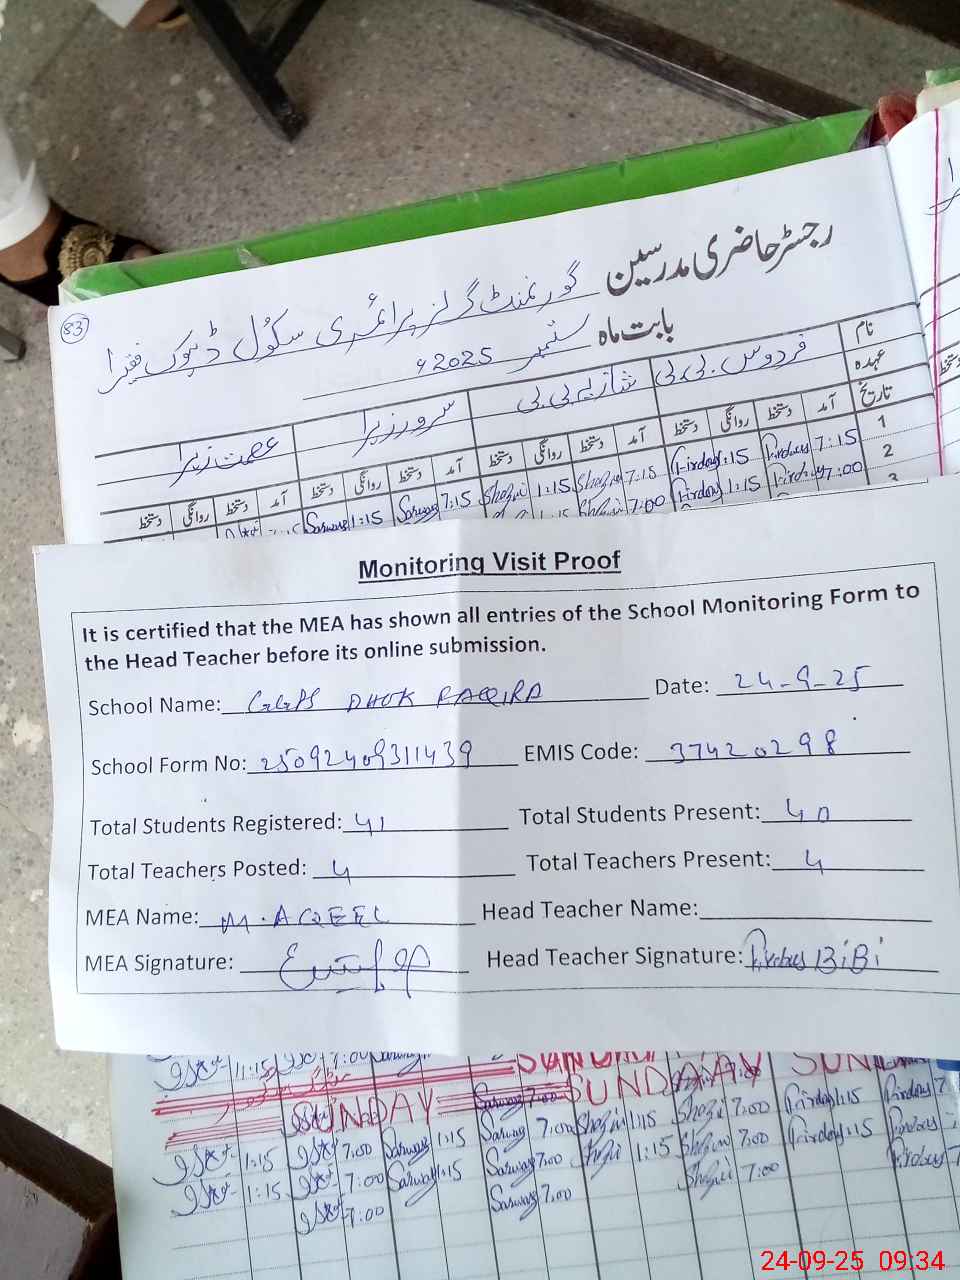 83
رجسٹر حاضری مدرسین گورنمنٹ گرلز پرائمری سکول ڈہوک فقیرا
بابت ماہ ستمبر 2025ء
نام فردوس بی بی شازیہ بی بی سرور زہرا عصمت زہرا
عہدہ
تاریخ آمد دستخط روانگی دستخط آمد دستخط روانگی دستخط آمد دستخط روانگی دستخط آمد دستخط روانگی دستخط
1 7:15 Firdous 1:15 Firdous 7:15 Shazia 1:15 Shazia 7:15 Sarwar 1:15 Sarwar
2 7:00 Firdous 1:15 Firdous 7:00 Shazia 1:15
3
Monitoring Visit Proof
It is certified that the MEA has shown all entries of the School Monitoring Form to
the Head Teacher before its online submission.
School Name: GGPS DHOK FAQIRA Date: 24-9-25
School Form No: 25092409311439 EMIS Code: 37420298
Total Students Registered: 41 Total Students Present: 40
Total Teachers Posted: 4 Total Teachers Present: 4
MEA Name: M.AQEEL Head Teacher Name:
MEA Signature: Head Teacher Signature: Firdous BiBi
1:15 7:00 SUNDAY SUN
SUNDAY SUNDAY
1:15 7:00 Sarwar 1:15 Sarwar 7:00 Shazia 1:15 Shazia 7:00 Firdous 1:15 Firdous 7
1:15 7:00 Sarwar 1:15 Sarwar 7:00 Shazia 1:15 Shazia 7:00 Firdous 1:15 Firdous
7:00 Sarwar 7:00 Shazia 7:00 Firdous 7
24-09-25 09:34